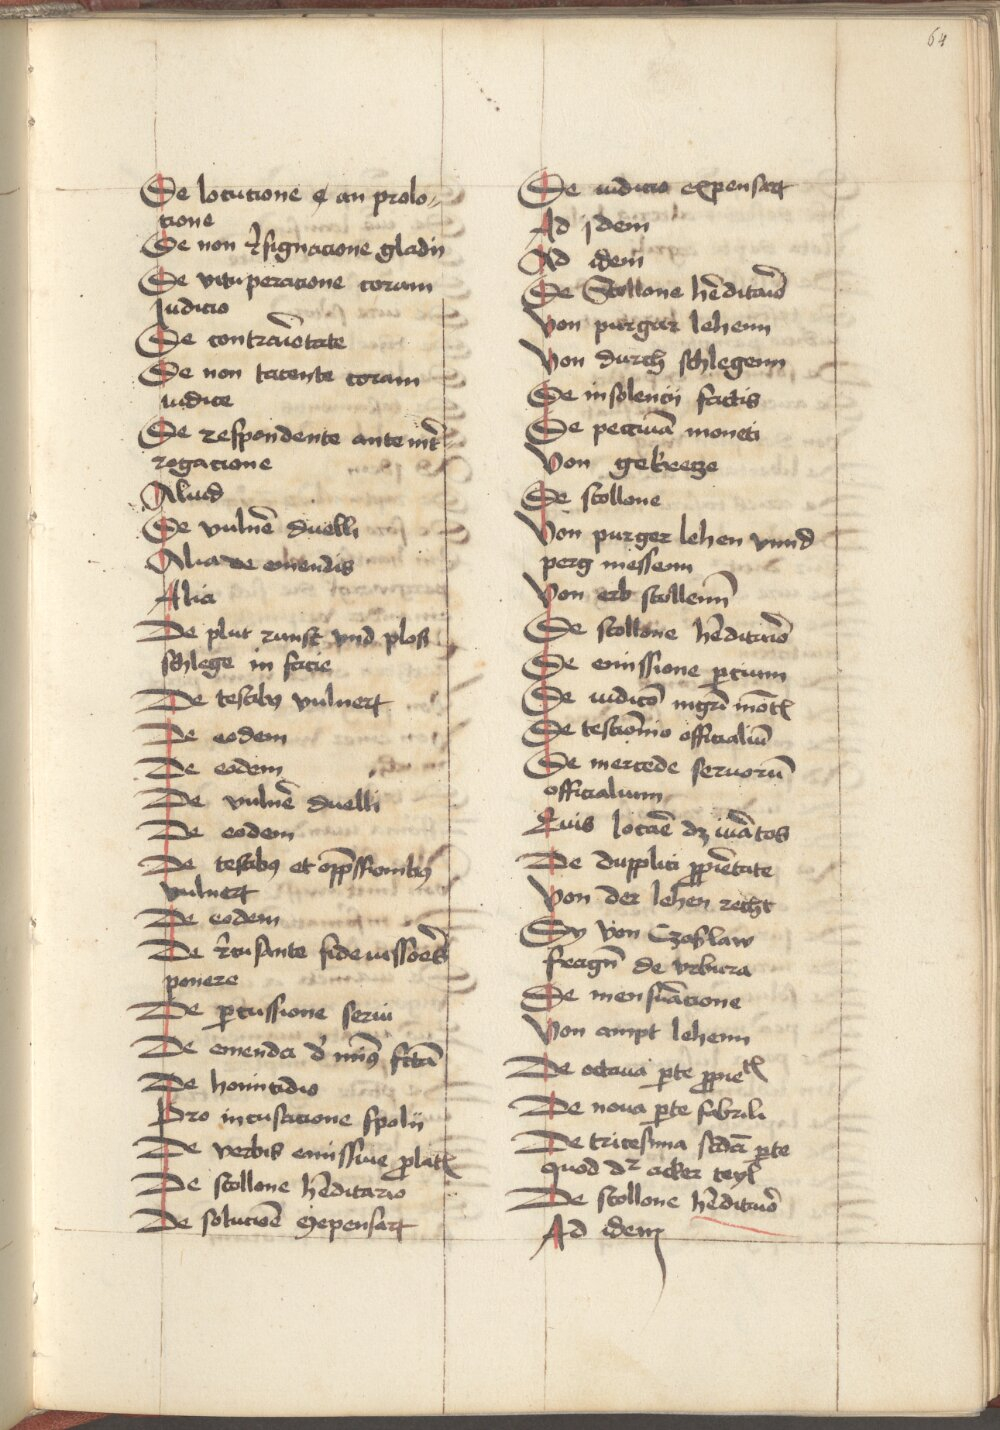 64
De locucione et an prolo-
cione
De non resignacione gladii
De vituperacione coram
Judicio
De contraietate
De non tacente coram
iudice
De respondente ante int̄
rogacione
Aliud
De vulnē duelli
Alia de emendis
Alia
De plut runst vnd ploß
schlege in facie
De testibus vulnerꝝ
De eodem
De eodem
De vulnē duelli
De eodem
De testibus et opp̄ssionibus
vulnerꝝ
De eodem
De recusante fideiussores
ponere
De percussione serui
De emenda
De homicidio
Pro incusacione spolii
De verbis emissiue prolatis
De stollone hēditario
De solucionē expensarꝝ
De iudicio expensarꝝ
Ad jdem
Ad idem
De Stollone hēditario
Von purger lehenn
Von durch schlegenn
De insolencii factis
De peccunia moneti
Von gekretze
De stollone
Von purger lehen vnnd
perg messenn
Von erb stollenn
De stollone hēditario
De emissione pꝛcium
De iudicō
De testiōnio officialiū
De mercede seruorū
officialium
Quis locaē dꝫ iuratos
De duppliti ꝓprietate
Von der lehen recht
Sy von Czaslaw
fragn̄ de vrbura
De mensuracione
Von ampt lehenn
De octaua parte
De noua parte fabrili
De tricesima scda parte
quod dr acker teyl
De stollone hēditario
Ad idem